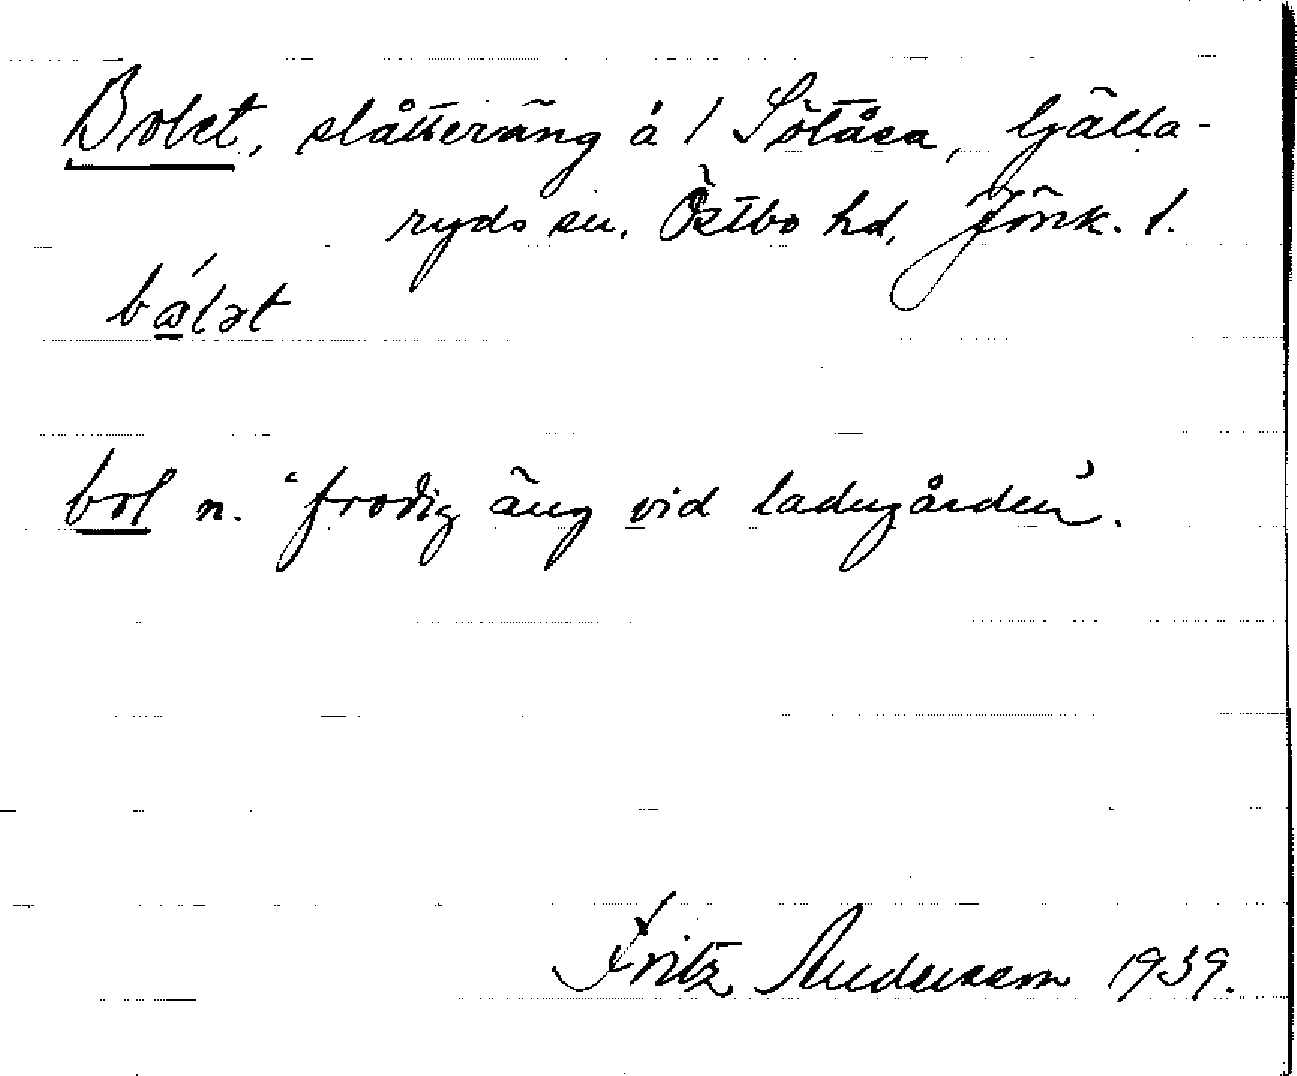 Bolet, slåtteräng å 1 Sötåsa, Gälla-
ryds sn. Östbo hd, Jönk. l.
bólət
bol n. "frodig äng vid ladugården".
Fritz Andersson 1939.